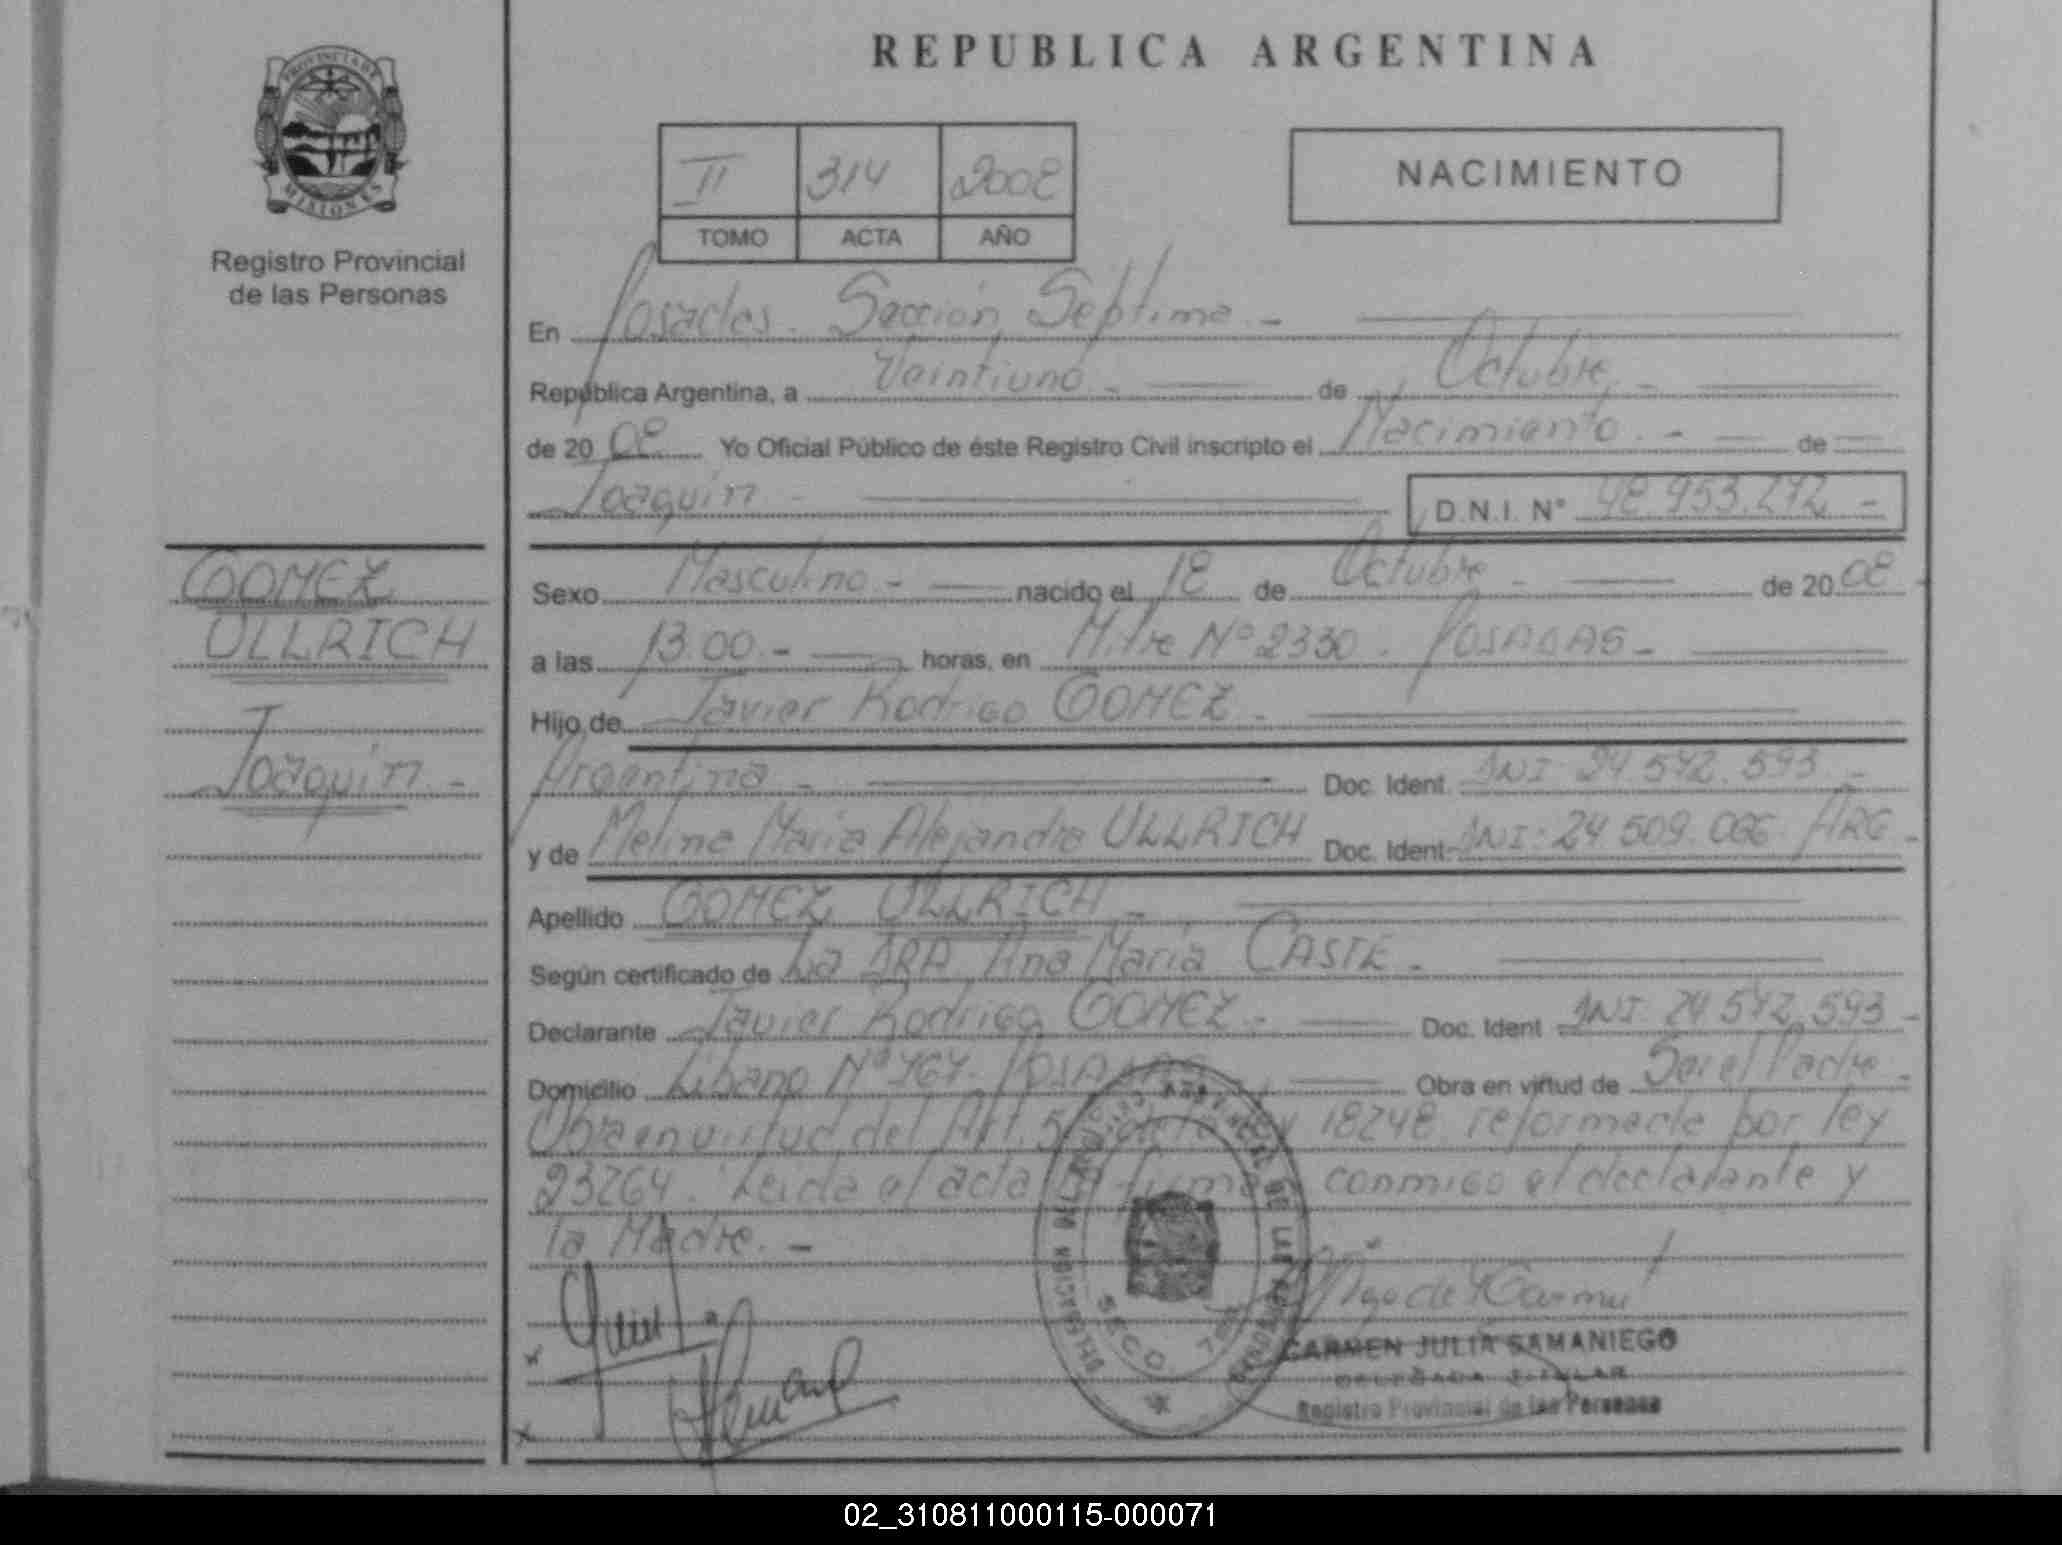 PROVINCIA DE
MISIONES
Registro Provincial
de las Personas
REPUBLICA ARGENTINA
II 314 2008
TOMO ACTA AÑO
NACIMIENTO
En Posadas. Sección Septima. -
República Argentina, a Veintiuno - de Octubre. -
de 20 08 Yo Oficial Público de éste Registro Civil inscripto el Nacimiento. - de
Joaquin - D.N.I. Nº 48.953.272 -
GOMEZ
ULLRICH
Joaquin. -
Sexo Masculino - nacido el 18 de Octubre - de 20 08 -
a las 13.00. - horas, en Mitre Nº 2330. POSADAS -
Hijo de Javier Rodrigo GOMEZ -
Argentina - Doc. Ident. DNI: 24.572.593 -
y de Melina Maria Alejandra ULLRICH Doc. Ident DNI: 24 509.066 ARG -
Apellido GOMEZ ULLRICH -
Según certificado de La DRA Ana Maria CASTE -
Declarante Javier Rodrigo GOMEZ - Doc. Ident DNI 24.572.593 -
Domicilio Libano Nº 767. POSADAS Obra en virtud de Ser el Padre -
Obra en virtud del Art. 5 18248 reformada por ley
23264. Leida el acta firma conmigo el declarante y
la Madre. -
SECC. 7
CARMEN JULIA SAMANIEGO
DELEGADA TITULAR
Registro Provincial de las Personas
02_310811000115-000071